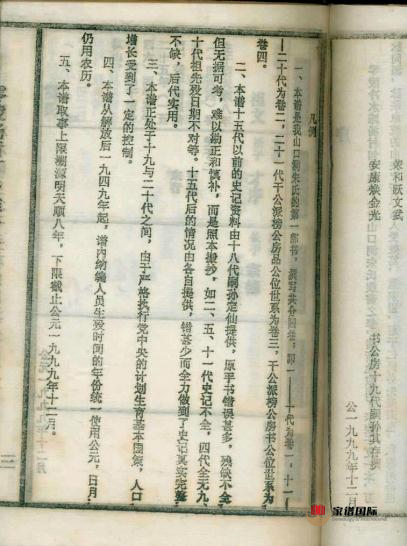 荣和跃文武
安康焕金光
书公房十九代嗣孙其存撰
公一九九九年十二月
凡例
一、本谱是我山口洞朱氏的第一部书，撰写共合四卷，即一——十代为卷一，十一
—二十代为卷二，二十一代干公派榜公房品公位世系为卷三，干公派榜公房书公位世系为
卷四。
二、本谱十五代以前的史记资料由十八代嗣孙定仙提供，原手书错误甚多，残缺不全
但无据可考，难以勘正和慎补，而是照本搬抄，如二、五、十一代史记不全，四代全无，九、
十代祖先殁日期不对等。十五代后的情况由各自提供，错甚少而全力做到了史记真实完整
不缺，后代实用。
三、本谱正处于十九与二十代之间，由于严格执行党中央的计划生育基本国策，人口
增长受到了一定的控制。
四、本谱从解放后一九四九年起，谱内纳编人员生殁时间的年份统一使用公元，日月
仍用农历。
五、本谱取事上限溯源明天顺八年，下限截止公元一九九九年十二月。
家谱国际